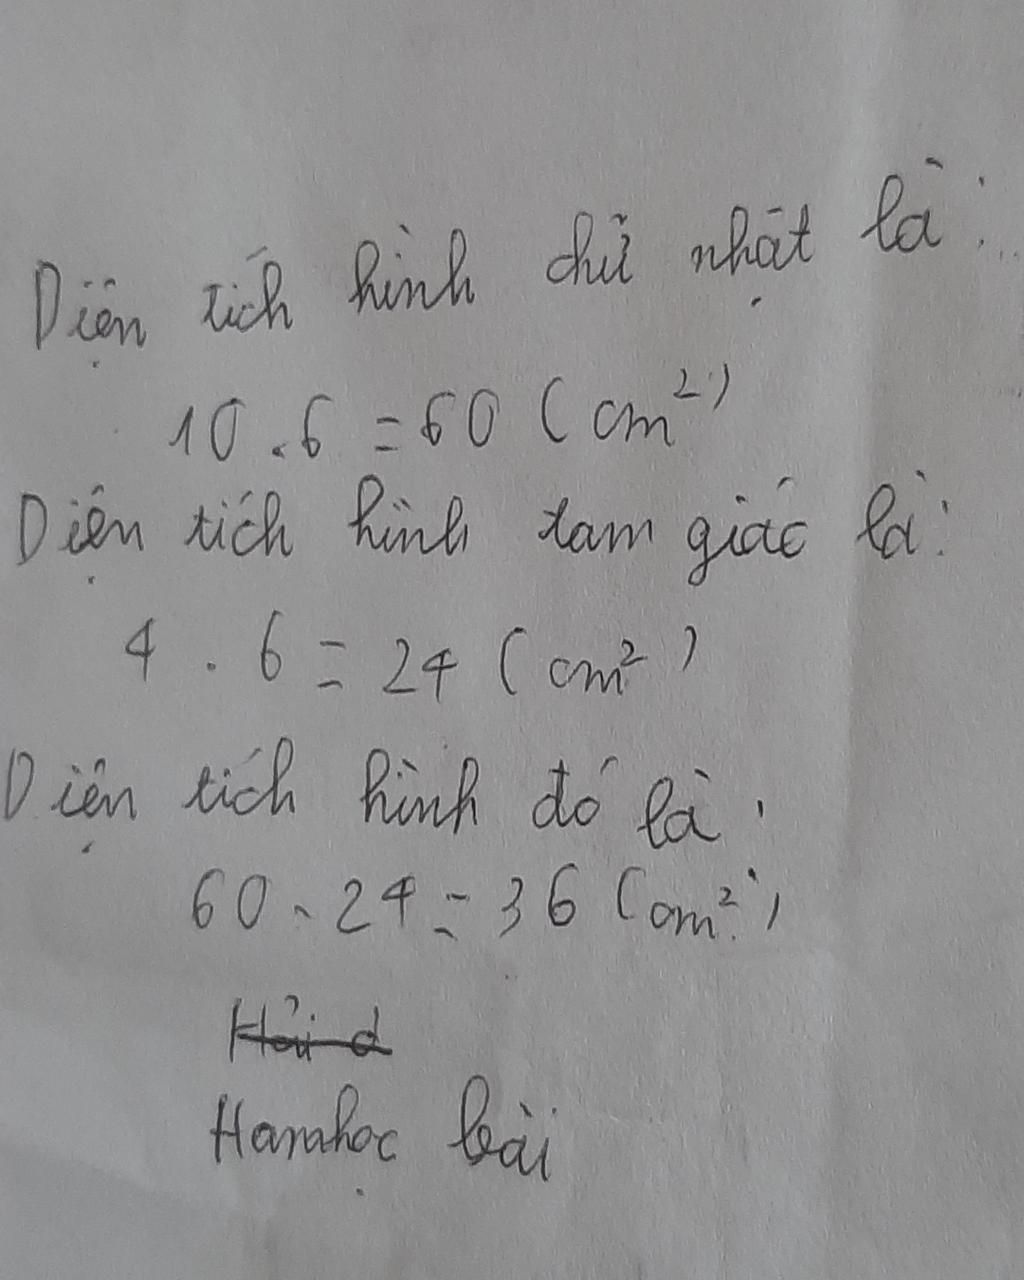 Diện tích hình chữ nhật là:
10.6 = 60 (cm²)
Diện tích hình tam giác là:
4.6 = 24 (cm²)
Diện tích hình đó là:
60-24 = 36 (cm²)
Hỏi d
Hamhọc bài